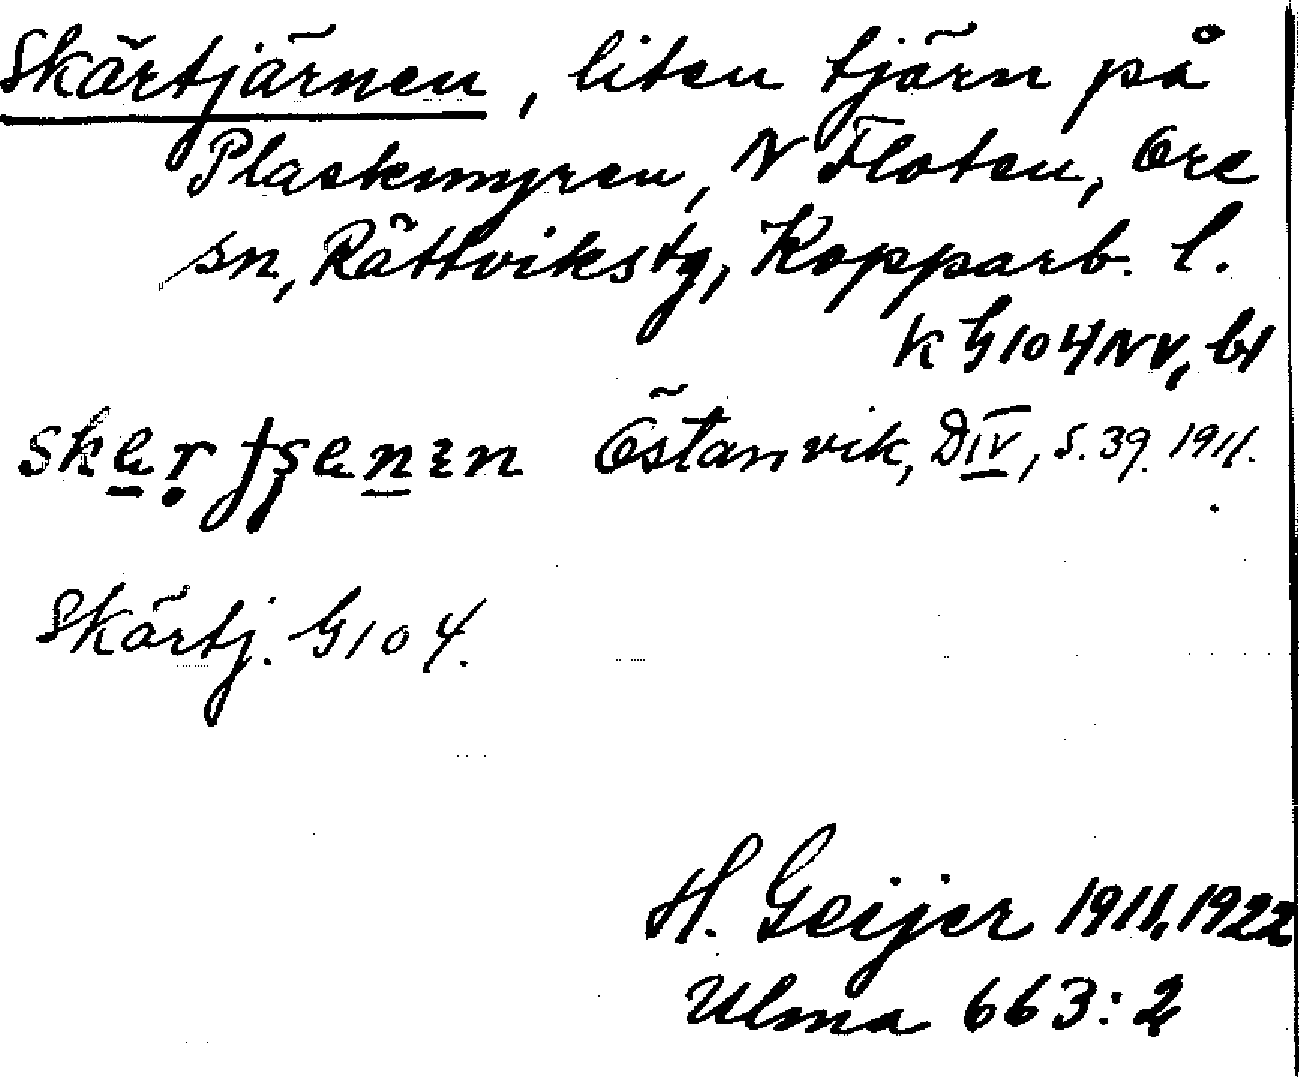 Skärtjärnen, liten tjärn på
Plaskmyren, N Floten, Ore
sn, Rättvikstg, Kopparb. l.
K G104NV, b1
Östanvik, D IV, s. 39. 1911.
Skärtj. G104.
H. Geijer 1911, 1922
Ulma 663:2